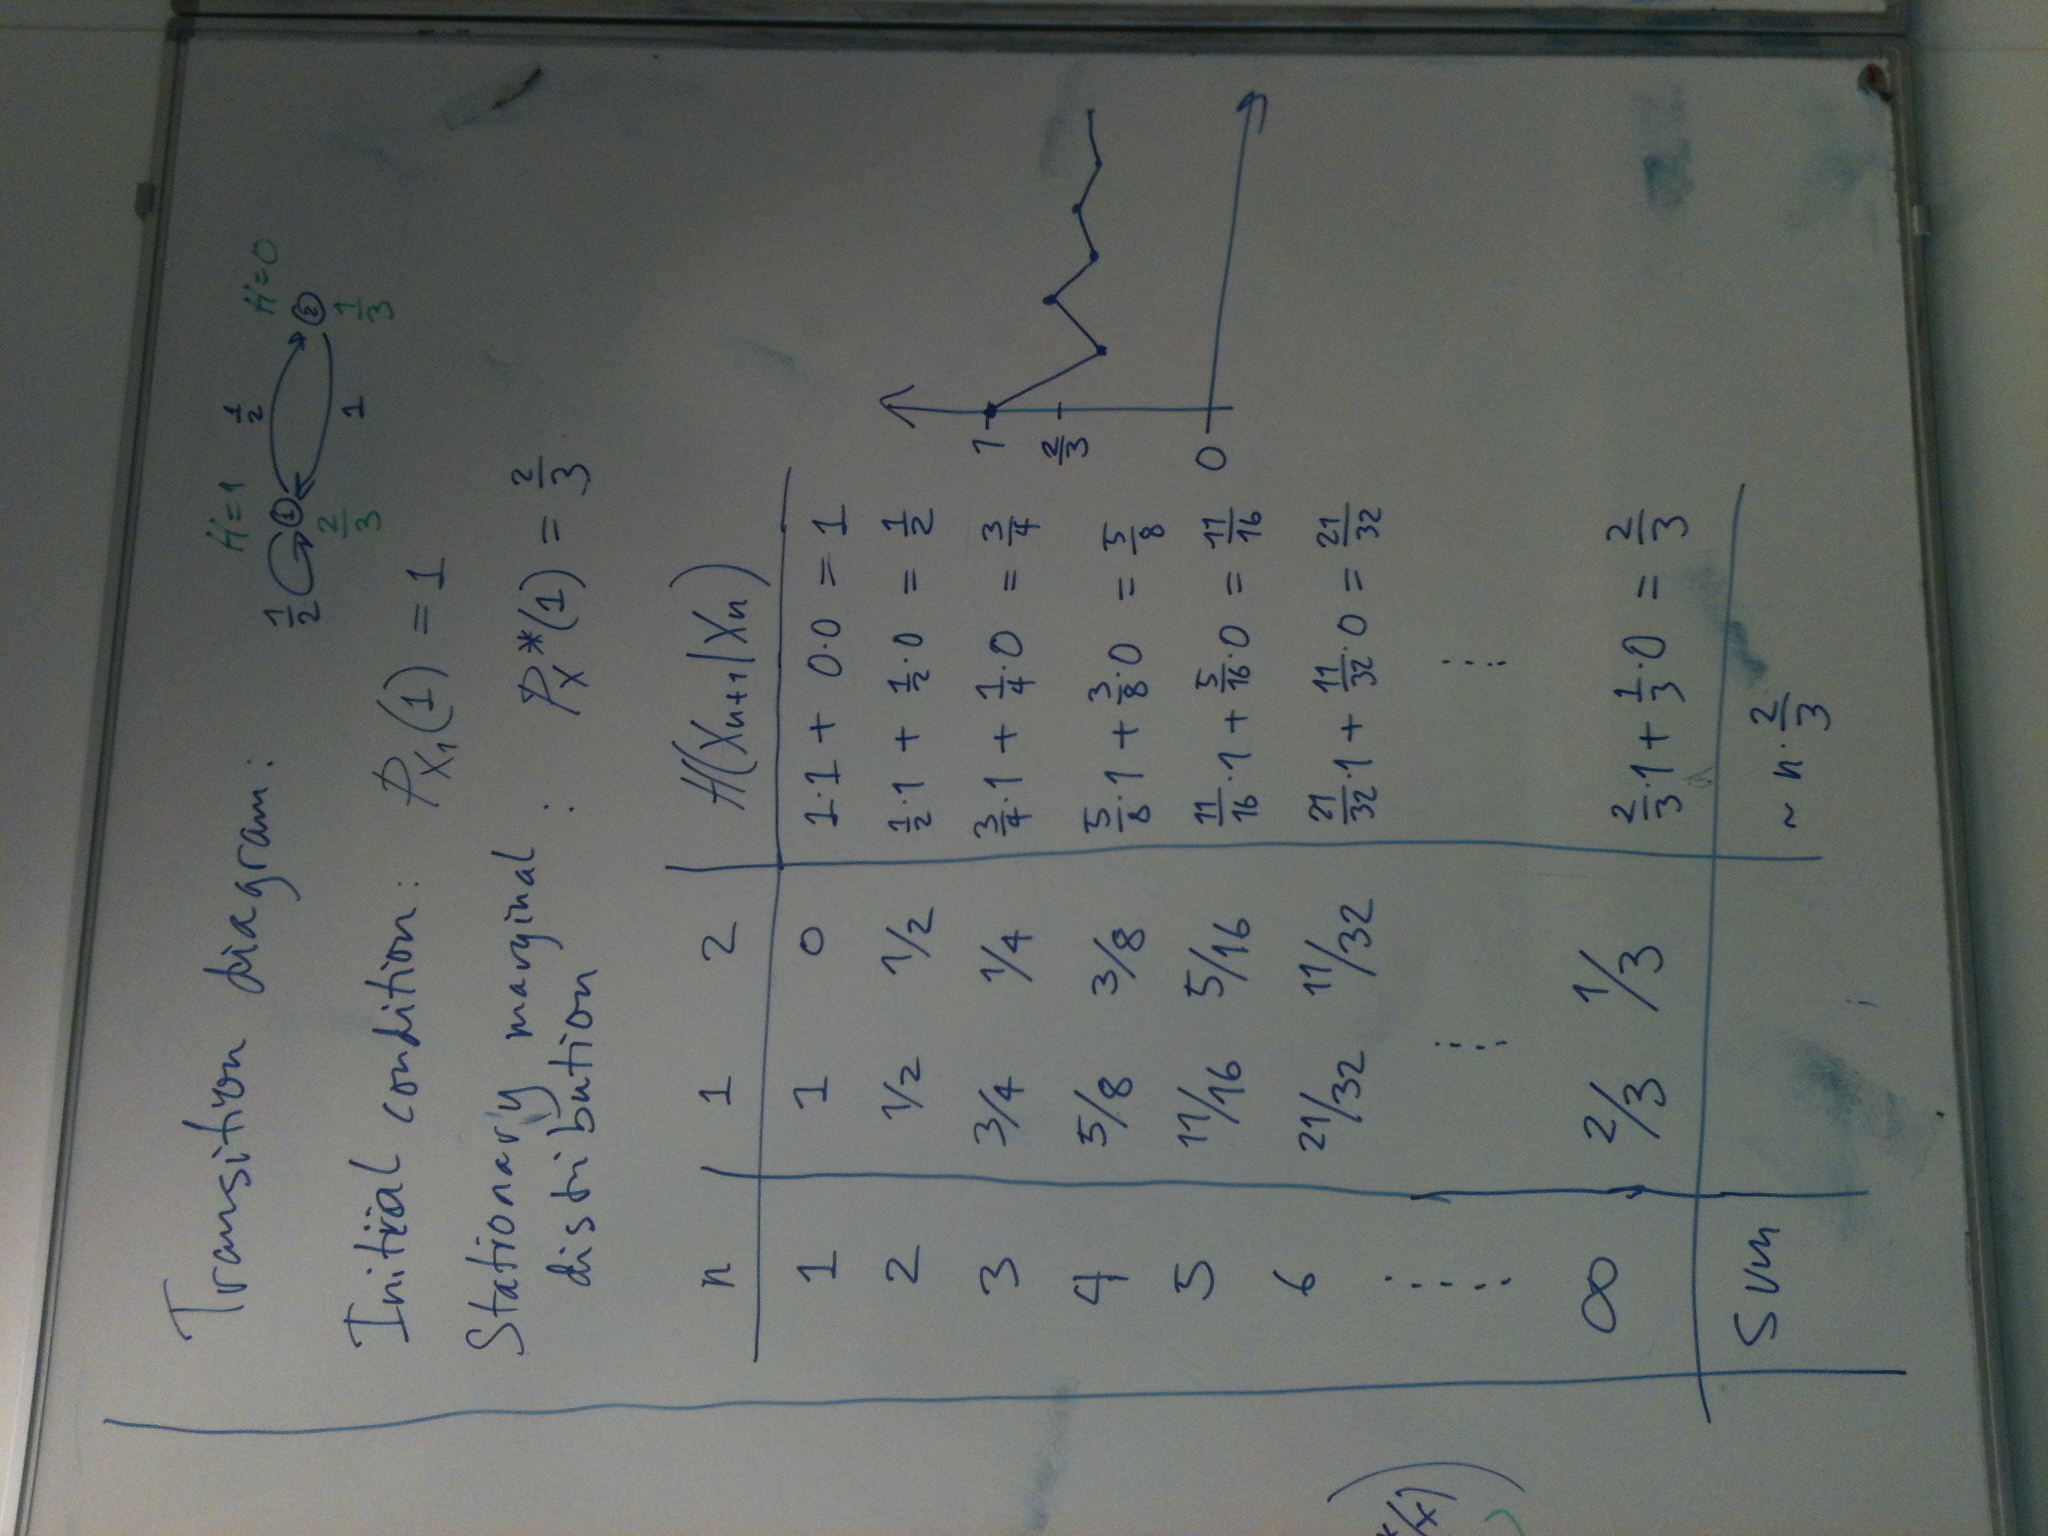 Transition diagram:
H=1 1/2 H=0
1/2 1 2
2/3 1 1/3
Initial condition: P_{X_1}(1) = 1
Stationary marginal
distribution : P_X*(1) = 2/3
n 1 2 H(X_{n+1}|X_n)
1 1 0 1·1 + 0·0 = 1
2 1/2 1/2 1/2·1 + 1/2·0 = 1/2
3 3/4 1/4 3/4·1 + 1/4·0 = 3/4
4 5/8 3/8 5/8·1 + 3/8·0 = 5/8
5 11/16 5/16 11/16·1 + 5/16·0 = 11/16
6 21/32 11/32 21/32·1 + 11/32·0 = 21/32
∞ 2/3 1/3 2/3·1 + 1/3·0 = 2/3
Sum ~ n·2/3
1
2/3
0